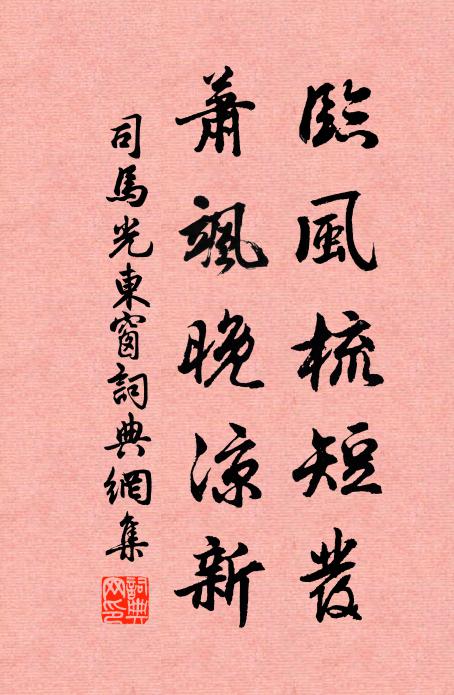 臨風梳短發
蕭颯晚涼新
司馬光東窗詞典網集
詞典網印